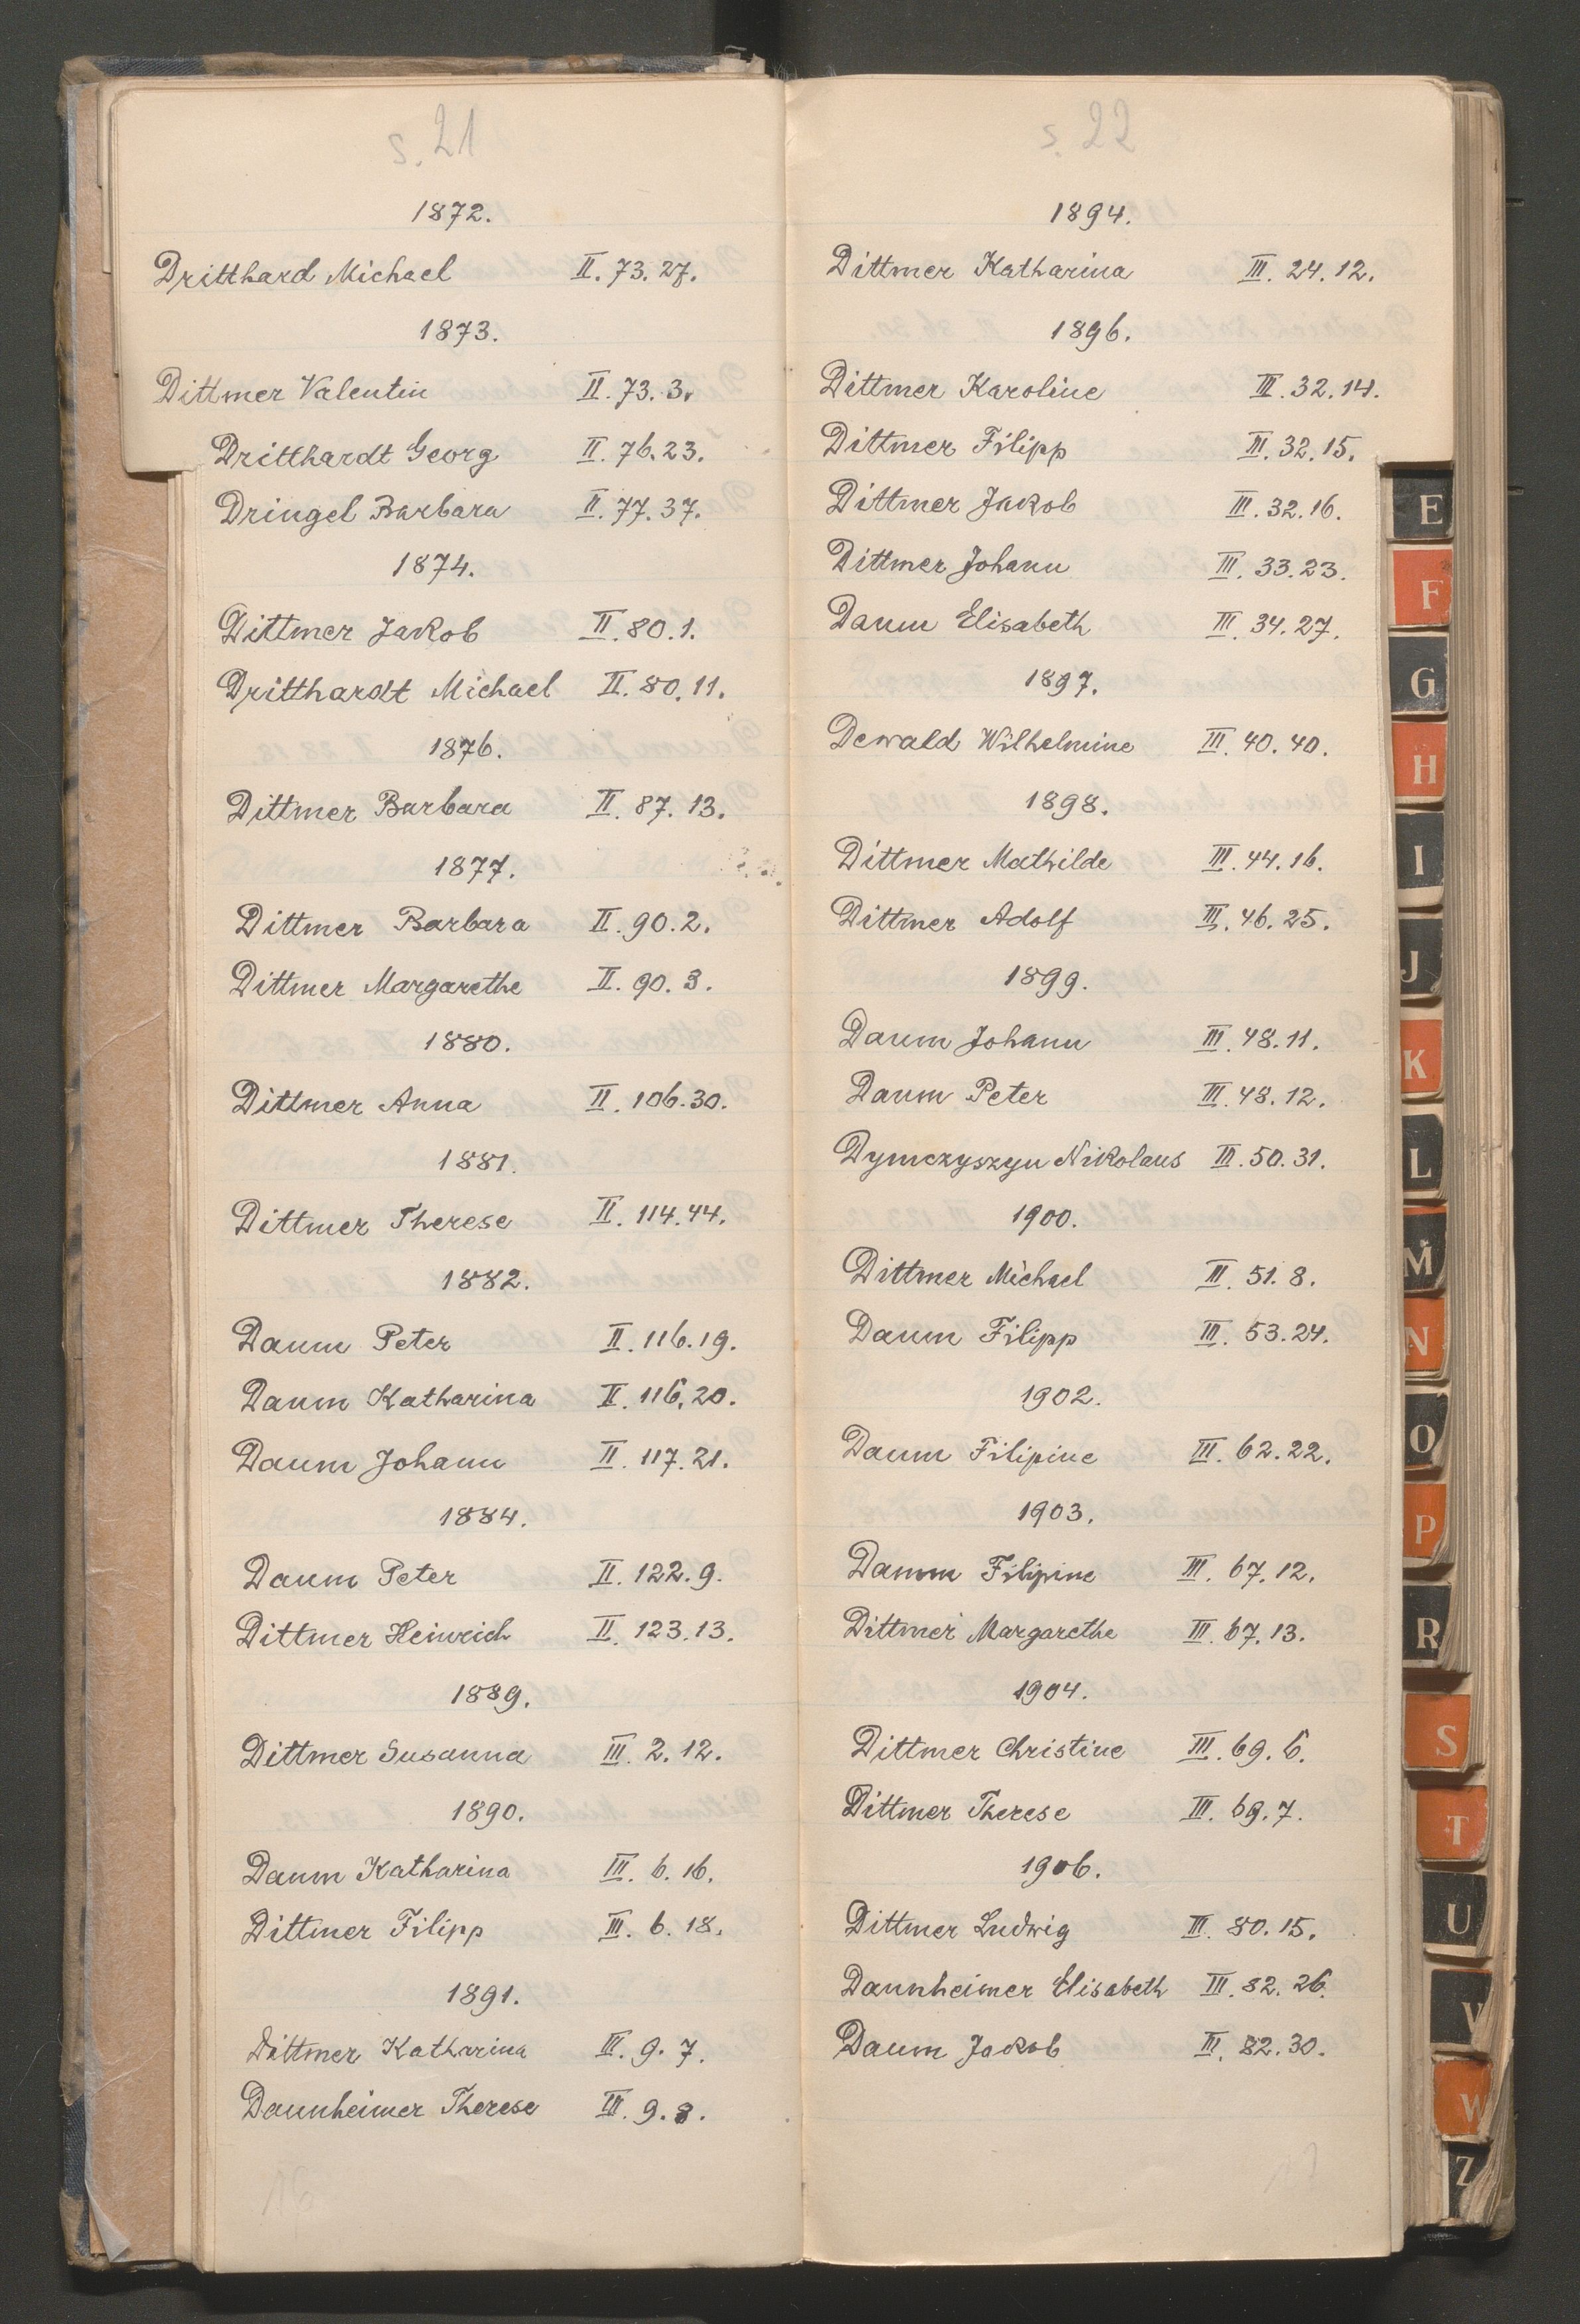 s. 21
1872.
Dritthard Michael II. 73. 27.
1873.
Dittmer Valentin II. 73. 3.
Dritthardt Georg II. 76. 23.
Dringel Barbara II. 77. 37.
1874.
Dittmer Jakob II. 80. 1.
Dritthardt Michael II. 80. 11.
1876.
Dittmer Barbara II. 87. 13.
1877.
Dittmer Barbara II. 90. 2.
Dittmer Margarethe II. 90. 3.
1880.
Dittmer Anna II. 106. 30.
1881.
Dittmer Therese II. 114. 44.
1882.
Daum Peter II. 116. 19.
Daum Katharina II. 116. 20.
Daum Johann II. 117. 21.
1884.
Daum Peter II. 122. 9.
Dittmer Heinrich II. 123. 13.
1889.
Dittmer Susanna III. 2. 12.
1890.
Daum Katharina III. 6. 16.
Dittmer Filipp III. 6. 18.
1891.
Dittmer Katharina III. 9. 7.
Dannheimer Therese III. 9. 8.
s. 22
1894.
Dittmer Katharina III. 24. 12.
1896.
Dittmer Karoline III. 32. 14.
Dittmer Filipp III. 32. 15.
Dittmer Jakob III. 32. 16.
Dittmer Johann III. 33. 23.
Daum Elisabeth III. 34. 27.
1897.
Dewald Wilhelmine III. 40. 40.
1898.
Dittmer Mathilde III. 44. 16.
Dittmer Adolf III. 46. 25.
1899.
Daum Johann III. 48. 11.
Daum Peter III. 48. 12.
Dymczyszyn Nikolaus III. 50. 31.
1900.
Dittmer Michael III. 51. 8.
Daum Filipp III. 53. 24.
1902.
Daum Filipine III. 62. 22.
1903.
Damm Filipine III. 67. 12.
Dittmer Margarethe III. 67. 13.
1904.
Dittmer Christine III. 69. 6.
Dittmer Therese III. 69. 7.
1906.
Dittmer Ludwig III. 80. 15.
Dannheimer Elisabeth III. 82. 26.
Daum Jakob III. 82. 30.
E
F
G
H
I
J
K
L
M
N
O
P
R
S
T
U
V
W
Z